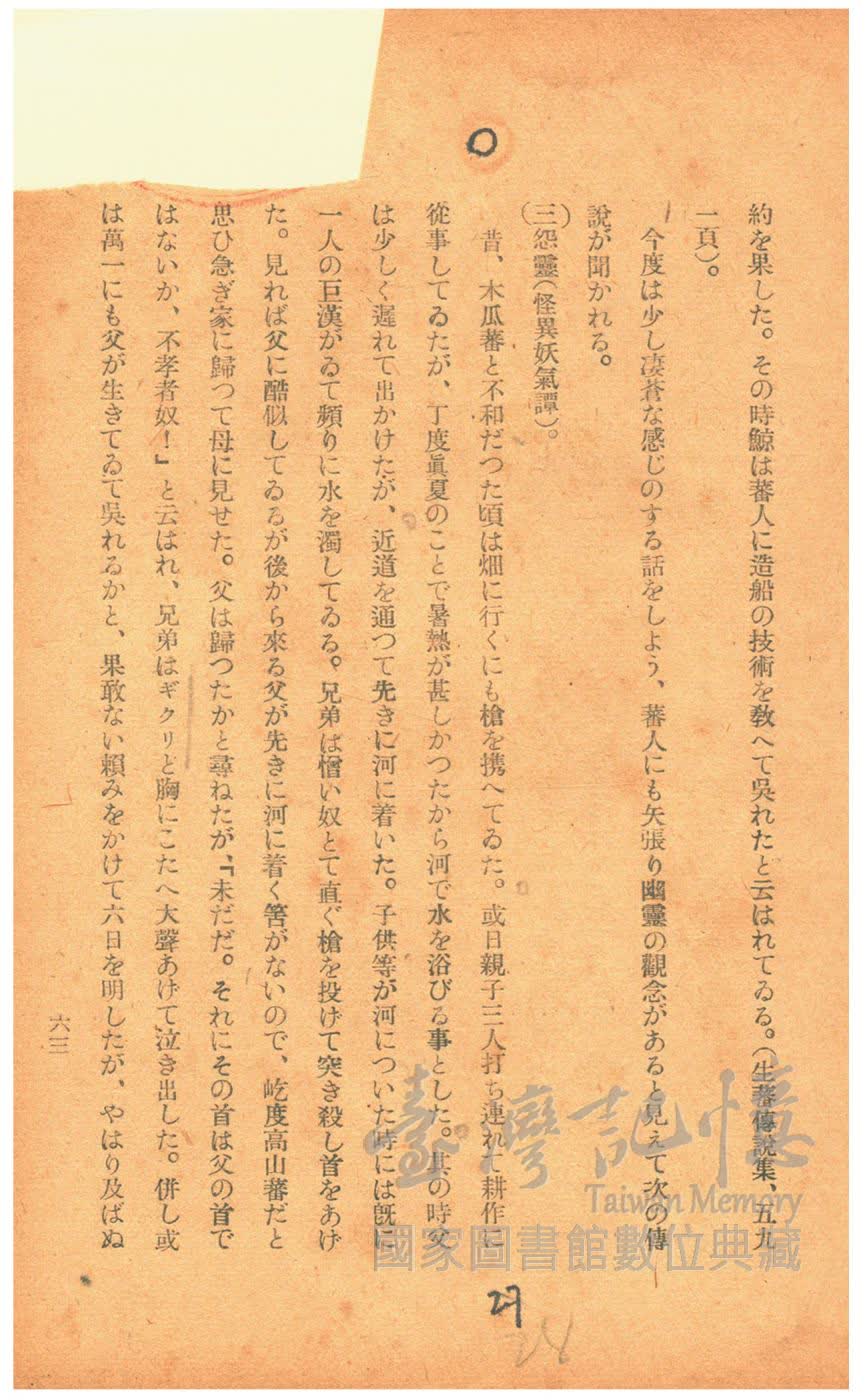 約を果した。その時鯨は蕃人に造船の技術を敎へて吳れたと云はれてゐる。(生蕃傳說集、五九
一頁)。
今度は少し凄蒼な感じのする話をしよう、蕃人にも矢張り幽靈の觀念があると見えて次の傳
說が聞かれる。
(三)怨靈(怪異妖氣譚)。
昔、木瓜蕃と不和だつた頃は畑に行くにも槍を携へてゐた。或日親子三人打ち連れて耕作に
從事してゐたが、丁度眞夏のことで暑熱が甚しかつたから河で水を浴びる事とした。其の時父
は少しく遲れて出かけたが、近道を通つて先きに河に着いた。子供等が河についた時には旣に
一人の巨漢がゐて頻りに水を濁してゐる。兄弟は憎い奴とて直ぐ槍を投げて突き殺し首をあげ
た。見れば父に酷似してゐるが後から來る父が先きに河に着く筈がないので、屹度高山蕃だと
思ひ急ぎ家に歸つて母に見せた。父は歸つたかと尋ねたが、「未だだ。それにその首は父の首で
はないか、不孝者奴！』と云はれ、兄弟はギクリと胸にこたへ大聲あげて泣き出した。併し或
は萬一にも父が生きてゐて吳れるかと、果敢ない賴みをかけて六日を明したが、やはり及ばぬ
六三
臺灣記憶
Taiwan Memory
國家圖書館數位典藏
29
28